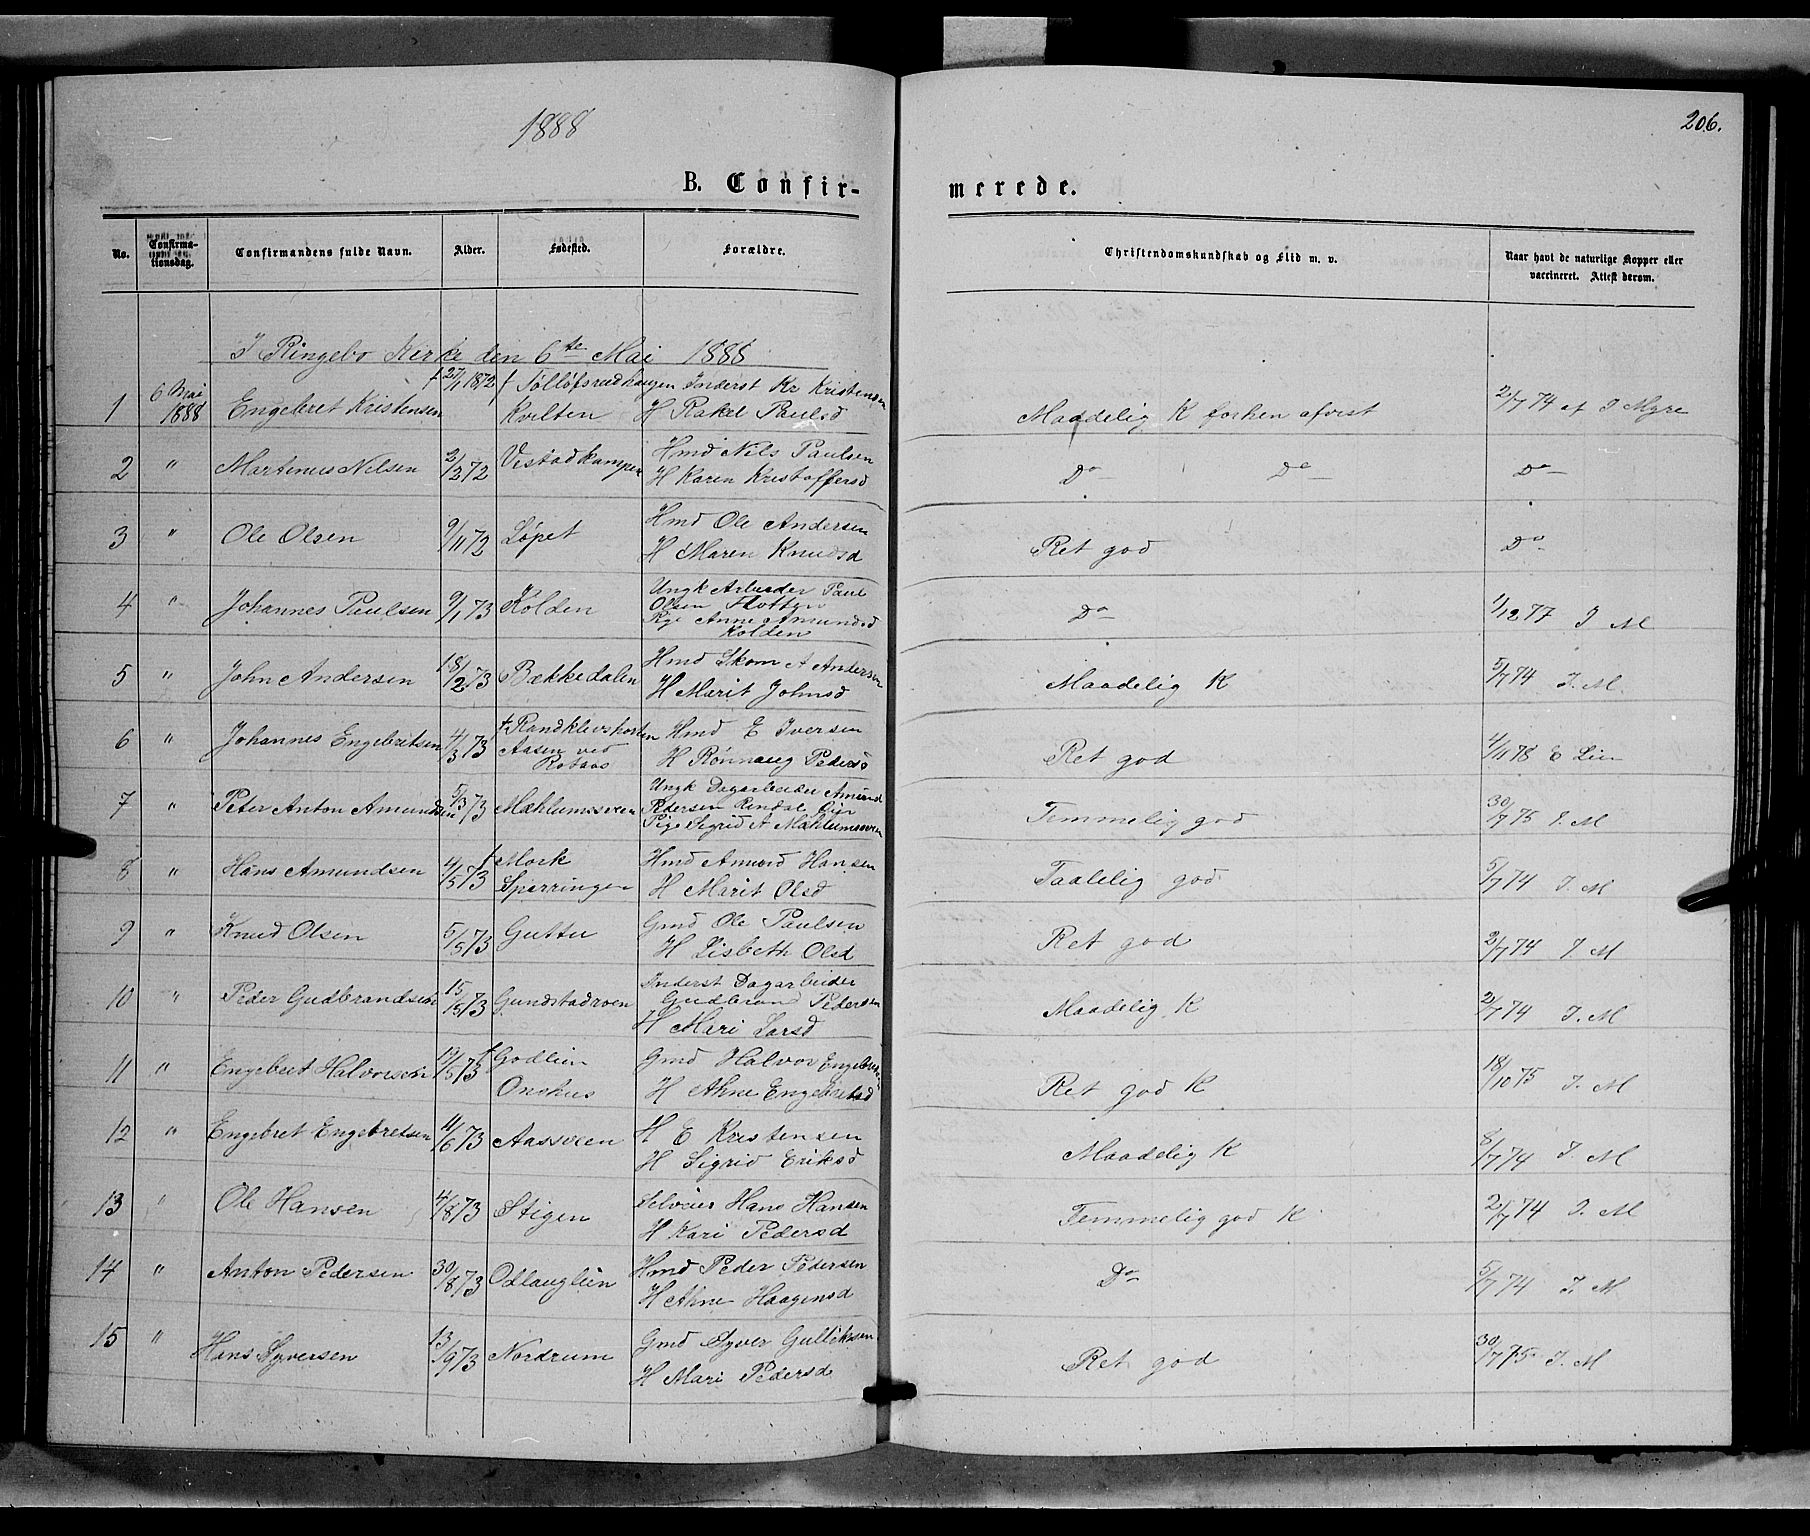 1888
206.
B. Confir-
merede.
No.
Confirma-
tionsdag.
Confirmandens fulde Navn.
Alder.
Fødested.
Forældre.
Christendomskundskab og Flid m. v.
Naar havt de naturlige Kopper eller
vaccineret. Attest derom.
I Ringebo Kirke den 6te Mai 1888
1 6 Mai 1888 Engebret Kristensen 27/1 1872 † Tølløfsrudhaugen Inderst Kr Kristensen
Kvilten H Rakel Paulsd Maadelig K forhen afvist 2/7 74 af I Myre
2 " Martinus Nilsen 2/2 72 Vistadkampen Hmd Nils Paulsen
H Karen Kristoffersd Do Do Do
3 " Ole Olsen 9/11 72 Løpet Hmd Ole Andersen
H Maren Knudsd Ret god Do
4 " Johannes Paulsen 9/1 73 Kolden Ungk Arbeider Paul
Olsen
Pige Anne Amundsd
Kolden Do 1/12 77 I M
5 " John Andersen 18/2 73 Bækkedalen Hmd Skom A Andersen
H Marit Johnsd Maadelig K 5/7 74 I. M
6 " Johannes Engebretsen 4/3 73 † Randklevshorten Hmd E Iversen
Aasen ved
H Rønnaug Pedersd Ret god 4/11 78 E Lien
7 " Peter Anton Amundsen 5/3 73 Mæhlumssveen Ungk Dagarbeider Amund
Pedersen Rindal Øier
Pige Sigrid A Mæhlumssveen Temmelig god 30/7 75 I. M
8 " Hans Amundsen 4/5 73 † Moek Hmd Amund Hansen
Sparringen H Marit Olsd Taalelig god 5/7 74 I. M
9 " Knud Olsen 5/5 73 Guttu Gmd Ole Paulsen
H Lisbeth Olsd Ret god 2/7 74 I. M
10 " Peder Gudbrandsen 15/5 73 Gundstadroen Inderst Dagarbeider
Gudbrand Pedersen
H Mari Larsd Maadelig K 2/7 74 I. M
11 " Engebret Halvorsen 19/5 73 † Godlien Gmd Halvor Engebretsen
Onshus H Ahne Engebretsd Ret god K 18/10 75 I. M
12 " Engebret Engebretsen 11/6 73 Aassveen H E Kristensen
H Sigrid Eriksd Maadelig K 8/7 74 I. M
13 " Ole Hansen 4/8 73 Stigen Selveier Hans Hansen
H Kari Pedersd Temmelig god K 2/7 74 I. M
14 " Anton Pedersen 30/8 73 Odlauglien Hmd Peder Pedersen
H Ahne Haagensd Do 5/7 74 I. M
15 " Hans Syversen 13/9 73 Nordrum Gmd Syver Gulliksen
H Mari Pedersd Ret god 30/7 75 I. M